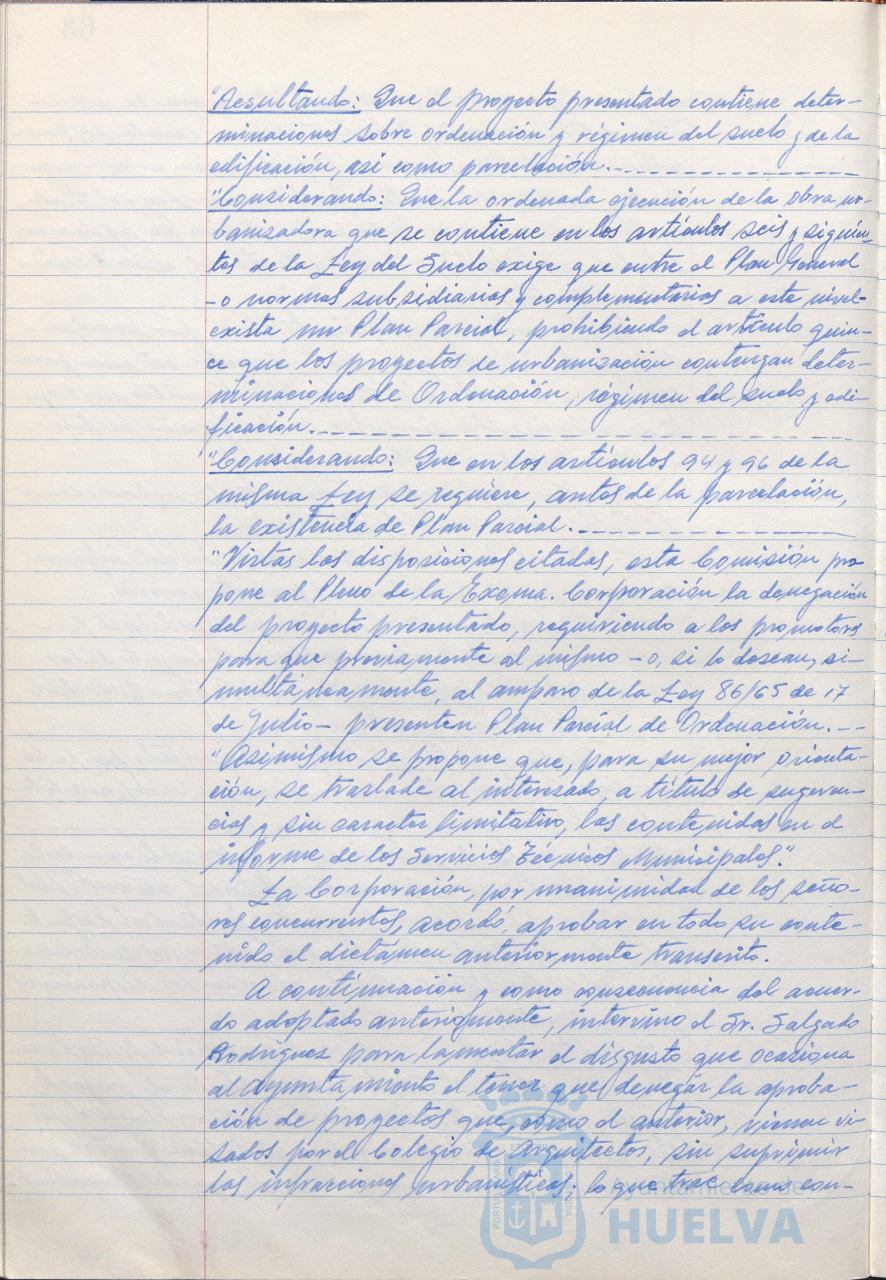 "Resultando: Que el proyecto presentado contiene deter-
minaciones sobre ordenación y régimen del suelo y de la
edificación, asi como parcelación.
"Considerando: Que la ordenada ejecución de la obra ur-
banizadora que se contiene en los artículos seis y siguien-
tes de la Ley del Suelo exige que entre el Plan General
-o normas subsidiarias y complementarias a este nivel-
exista un Plan Parcial, prohibiendo el artículo quin-
ce que los proyectos de urbanización contengan deter-
minaciones de Ordenación, régimen del suelo y edi-
ficación.
"Considerando: Que en los artículos 94 y 96 de la
misma Ley se requiere, antes de la parcelación,
la existencia de Plan Parcial.
"Vistas las disposiciones citadas, esta Comisión pro-
pone al Pleno de la Excma. Corporación la denegación
del proyecto presentado, requiriendo a los promotores
para que previamente al mismo -o, si lo desean, si-
multáneamente, al amparo de la Ley 86/65 de 17
de Julio- presenten Plan Parcial de Ordenación.
"Asimismo se propone que, para su mejor orienta-
ción, se traslade al interesado, a título de sugeren-
cias y sin caracter limitativo, las contenidas en el
informe de los Servicios Técnicos Municipales."
La Corporación, por unanimidad de los seño-
res concurrentes, acordó, aprobar en todo su conte-
nido el dictámen anteriormente transcrito.
A continuación y como consecuencia del acuer-
do adoptado anteriormente, intervino el Sr. Salgado
Rodríguez para lamentar el disgusto que ocasiona
al Ayuntamiento el tener que denegar la aproba-
ción de proyectos que, como el anterior, vienen vi-
sados por el Colegio de Arquitectos, sin suprimir
las infracciones urbanísticas; lo que trae como con-
Ayuntamiento de
HUELVA